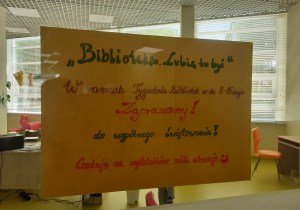 „Biblioteka. Lubię tu być"
W ramach Tygodnia Bibliotek w dn. 8-15 maja
Zapraszamy!
do wspólnego świętowania!
Czekają na czytelników miłe atrakcje